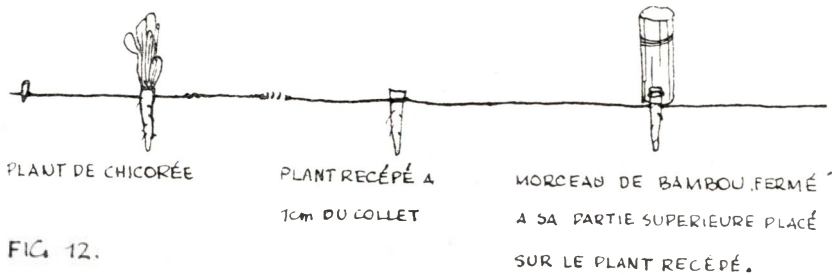 PLANT DE CHICORÉE
PLANT RECÉPÉ A
1cm DU COLLET
MORCEAU DE BAMBOU, FERMÉ
A SA PARTIE SUPERIEURE PLACÉ
SUR LE PLANT RECÉPÉ.
FIG. 12.